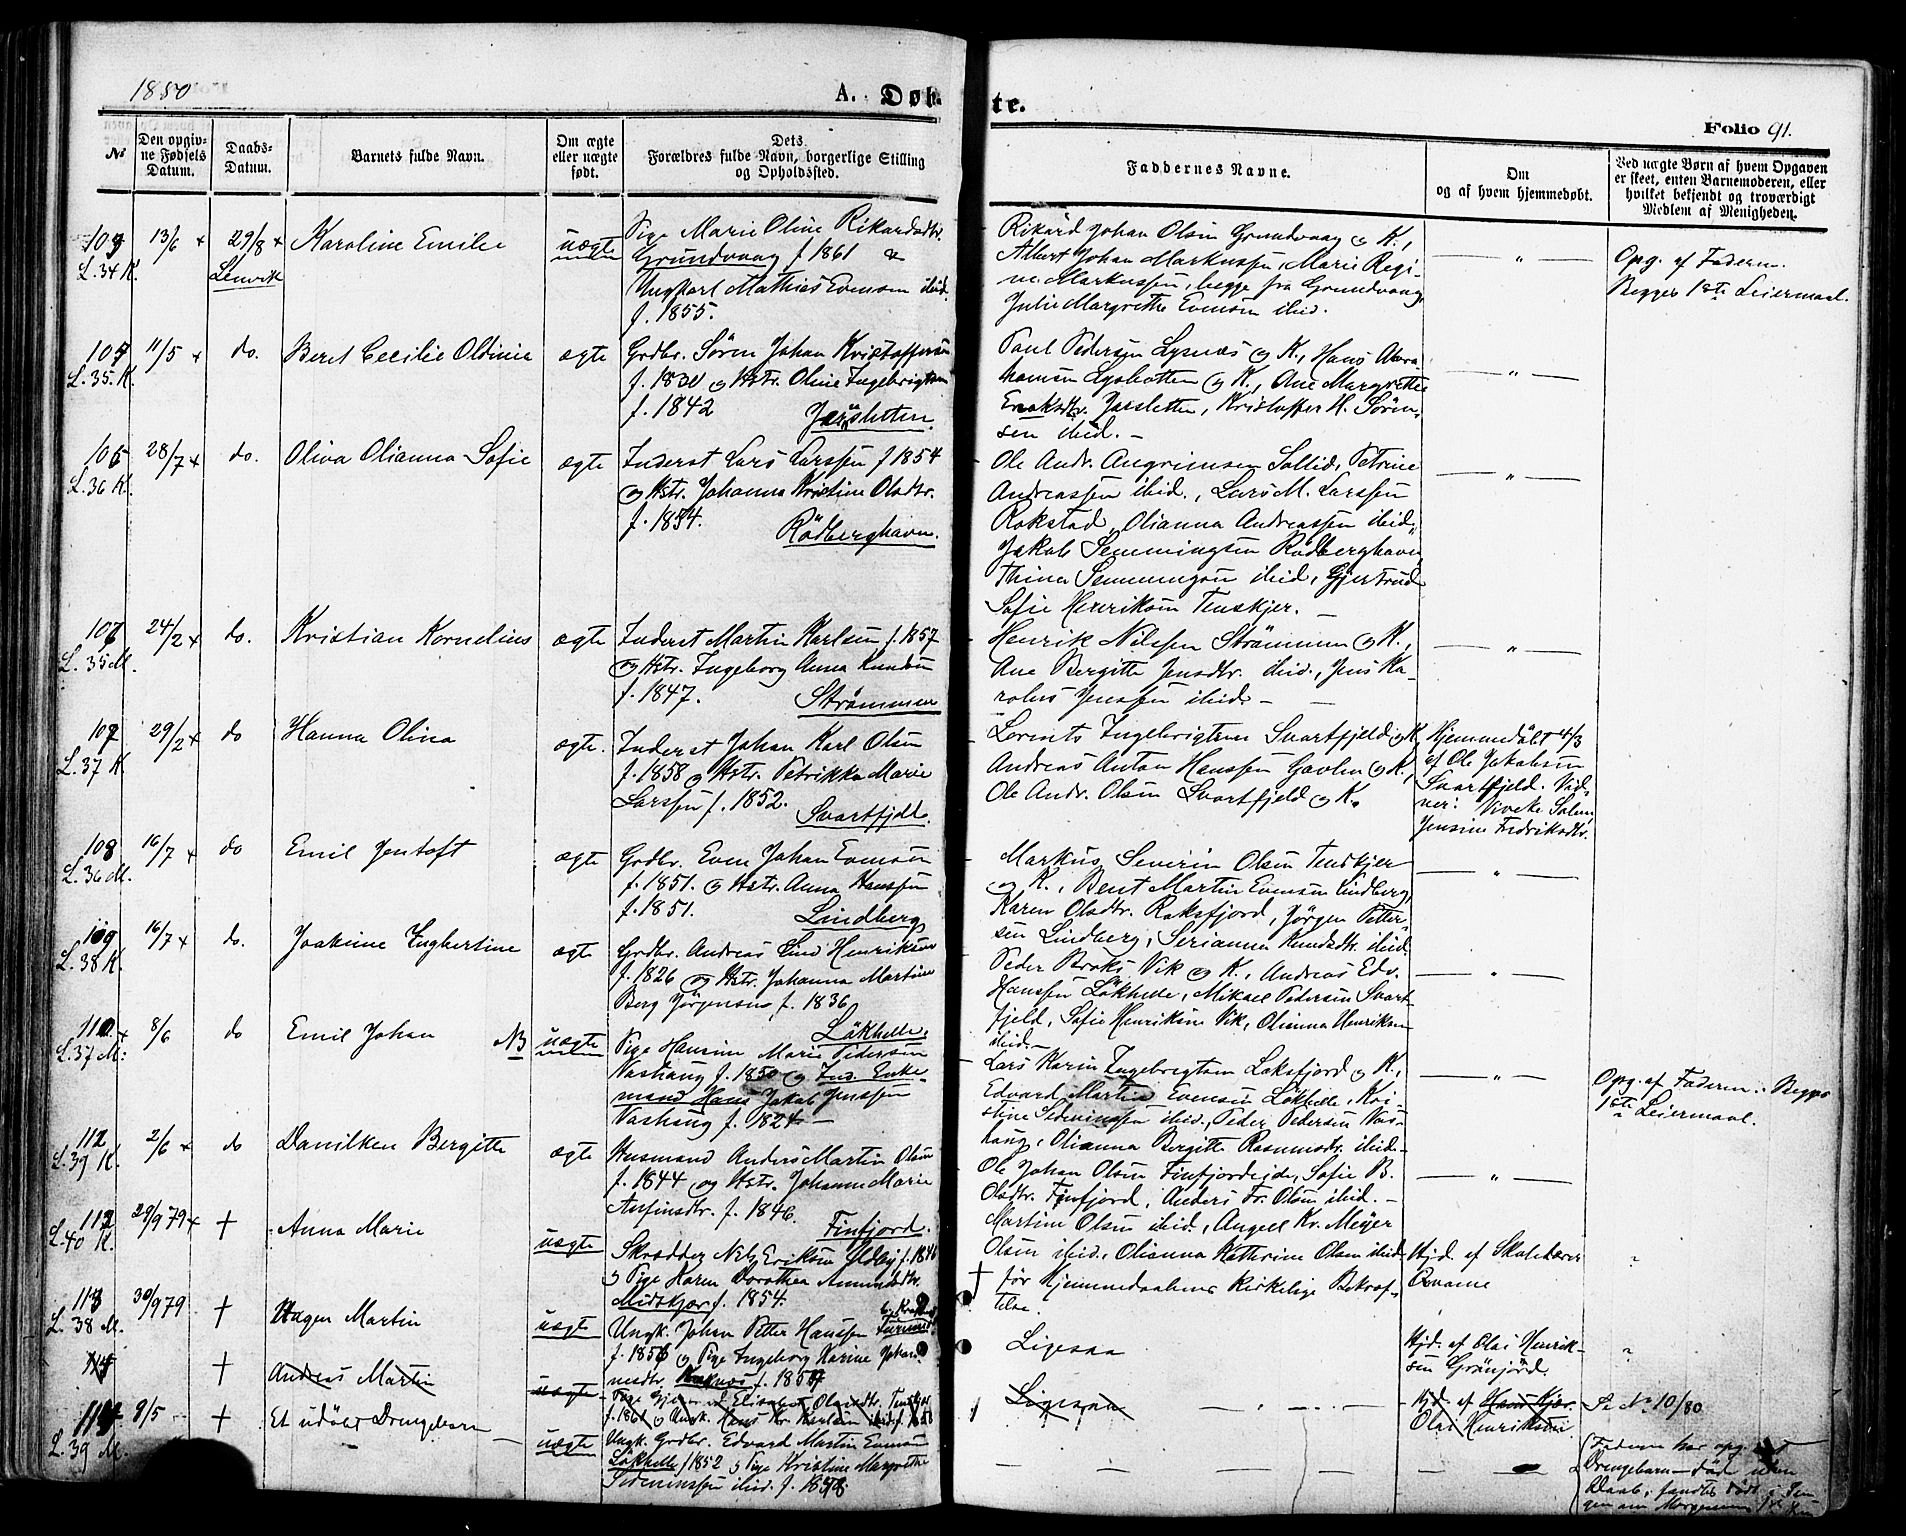 1880
A. Døb
te.
Folio 91.
No
Den opgiv-
ne Fødsels
Datum.
Daabs-
Datum.
Barnets fulde Navn.
Om ægte
eller uægte
født.
Dets
Forældres fulde Navn, borgerlige Stilling
og Opholdssted.
Faddernes Navne.
Om
og af hvem hjemmedøbt.
Ved uægte Børn af hvem Opgaven
er skeet, enten Barnemoderen, eller
hvilket bekjendt og troværdigt
Medlem af Menigheden.
L. 34 K. 13/6 + 29/8 + Lenvik Karoline Emilie uægte
Pige Marie Oline Rikardsdtr.
Grundvaag f 1861 &
Ungkarl Mathias Evensen ibid.
f. 1855.
Rikard Johan Olsen Grundvaag og K.,
Albert Johan Markussen, Marie Regi-
ne Markussen, begge fra Grundvaag,
Julie Margrethe Evensen ibid.
— " —
Opg. af Faderen.
Begges 1ste Leiermaal.
L. 35 K. 11/5 + do. Beret Cecilie Oldine ægte
Grdbr. Sören Johan Kristoffersen
f. 1830 og Hstr. Oline Ingebrigtsen
f. 1842 Jarsletten.
Paul Pedersen Lysnæs og K., Hans Abra-
hamsen Lysbotten og K., Ane Margrethe
Enoksdtr. Jarsletten, Kristoffer H. Sören-
sen ibid. —
— " —
L. 36 K. 28/7 + do. Oliva Olianna Sofie ægte
Inderst Lars Larssen f 1854
og Hstr. Johanna Kristine Olsdtr.
f. 1854. Rödberghavn.
Ole Andr. Angrimsen Sollid, Petrine
Andreassen ibid., Lars M. Larssen
Rokstad, Olianna Andreassen ibid.,
Jakob Semmingsen Rödberghavn,
Thina Semmingsen ibid, Gjertrud
Sofie Henriksen Tenskjer. —
— " —
L. 35 M. 24/2 + do. Kristian Kornelius ægte
Inderst Martin Karlsen f. 1857
og Hstr. Ingeborg Anna Knudsen
f. 1847. Strömmen
Henrik Nilssen Strömmen og K.,
Ane Bergitte Jensdtr. ibid., Jens Ka-
rolus Jenssen ibid. —
— " —
107 L. 37 K. 29/2 + do Hanna Olina ægte.
Inderst Johan Karl Olsen
f. 1858 og Hstr. Petrikka Marie
Larssen f. 1852. Svartfjdl.
Lorents Ingebrigtsen Svartfjeld og K,
Andreas Anton Hanssen Gavlen og K.,
Ole Andr. Olsen Svartfjeld og K.
Hjemmedöbt 4/3
af Ole Jakobsen
Svartfjeld. Vid-
ner: Viveke Salam.
Jensine Fredriksdtr.
108 L. 36 M. 16/7 + do Emil Jentoft ægte
Grdbr. Even Johan Evensen
f. 1851. og Hstr. Anna Hanssen
f. 1851. Lindberg
Markus Severin Olsen Tenskjer
og K., Bent Martin Evensen Lindberg,
Karen Olsdtr. Roksfjord, Jörgen Petter-
sen Lindberg, Serianna Knudsdtr. ibid.
— " —
109 L. 38 K. 16/7 + do. Joakime Ingbertine ægte
Grdbr. Andreas Lind Henriksen
f. 1826 og Hstr. Johanna Martine
Berg Jörgensen, f. 1836
Lökhelle.
Peder Broks Vik og K., Andreas Edv.
Hanssen Lökhelle, Mikael Pedersen Svart-
fjeld, Sofie Henriksen Vik, Olianna Henriksen
ibid.—
— " —
110 L. 37 M. 8/6 do Emil Johan NB uægte
Pige Hansine Marie Pedersen
Vashaug f. 1850 og Ind. Enke-
mand Hans Jakob Jenssen
Vashaug f. 1824 —
Lars Karin Ingebrigtsen Laksfjord og K.,
Edvard Martin Evensen Lökhelle, Kri-
stine Sedeninssen ibid., Peder Pedersen Vas-
haug, Olianna Bergitte Rasmusdtr. ibid.—
— " —
Opg. af Faderen. Begges
1ste Leiermaal.
112 L. 39 K. 2/6 + do Danilken Bergitte ægte
Husmand Anders Martin Olsen
f. 1844 og Hstr. Johanne Marie
Anfinsdtr. f. 1846. Finfjord.
Ole Johan Olsen Finfjordeide, Sofie B.
Olsdtr. Finfjord, Anders Fr. Olsen ibid. —
Martine Olsen ibid., Angell Kr. Meyer
Olsen ibid., Olianna Kathrine Olsen ibid.
— " —
L. 40 K. 29/9 79 + † Anna Marie uægte
Skrædder Nils Eriksen f. 1840
og Pige Karen Dorothea Amundsdtr.
Midtkjær f. 1854.
† før Hjemmedaabens kirkelige Bekræf-
telse.
Hjd. af Skolelærer
"
113 L. 38 M. 30/9 79 † Hagen Martin uægte
Ungk. Johan Petter Hanssen
f. 1856 og Pige Ingeborg Karine Johan-
nesdtr. f. 1857
Ligesaa
Hjd. af Olai Henrik-
sen Grönjord.
"
† Andreas Martin uægte
Pige Elisabet Olsdtr. Tenskjer
f. 1861 og Ungk. Hans Kr. Karlsen ibid f. 1858
Ligesaa
Hjd. af Hans Kjær.
Olai Henriksen.
Se No 10/80
114 L. 39 M. 9/5 † Et udöbt Drengebarn uægte
Ungk. Grdbr. Edvard Martin Evensen
Lökhelle f 1852 og Pige Kristine Margrethe
Sedeninssen ibid. f. 1858
Faderen har opg.
Drengebarn — død uden
Daab, fandtes dødt i Sen-
gen om Morgenen